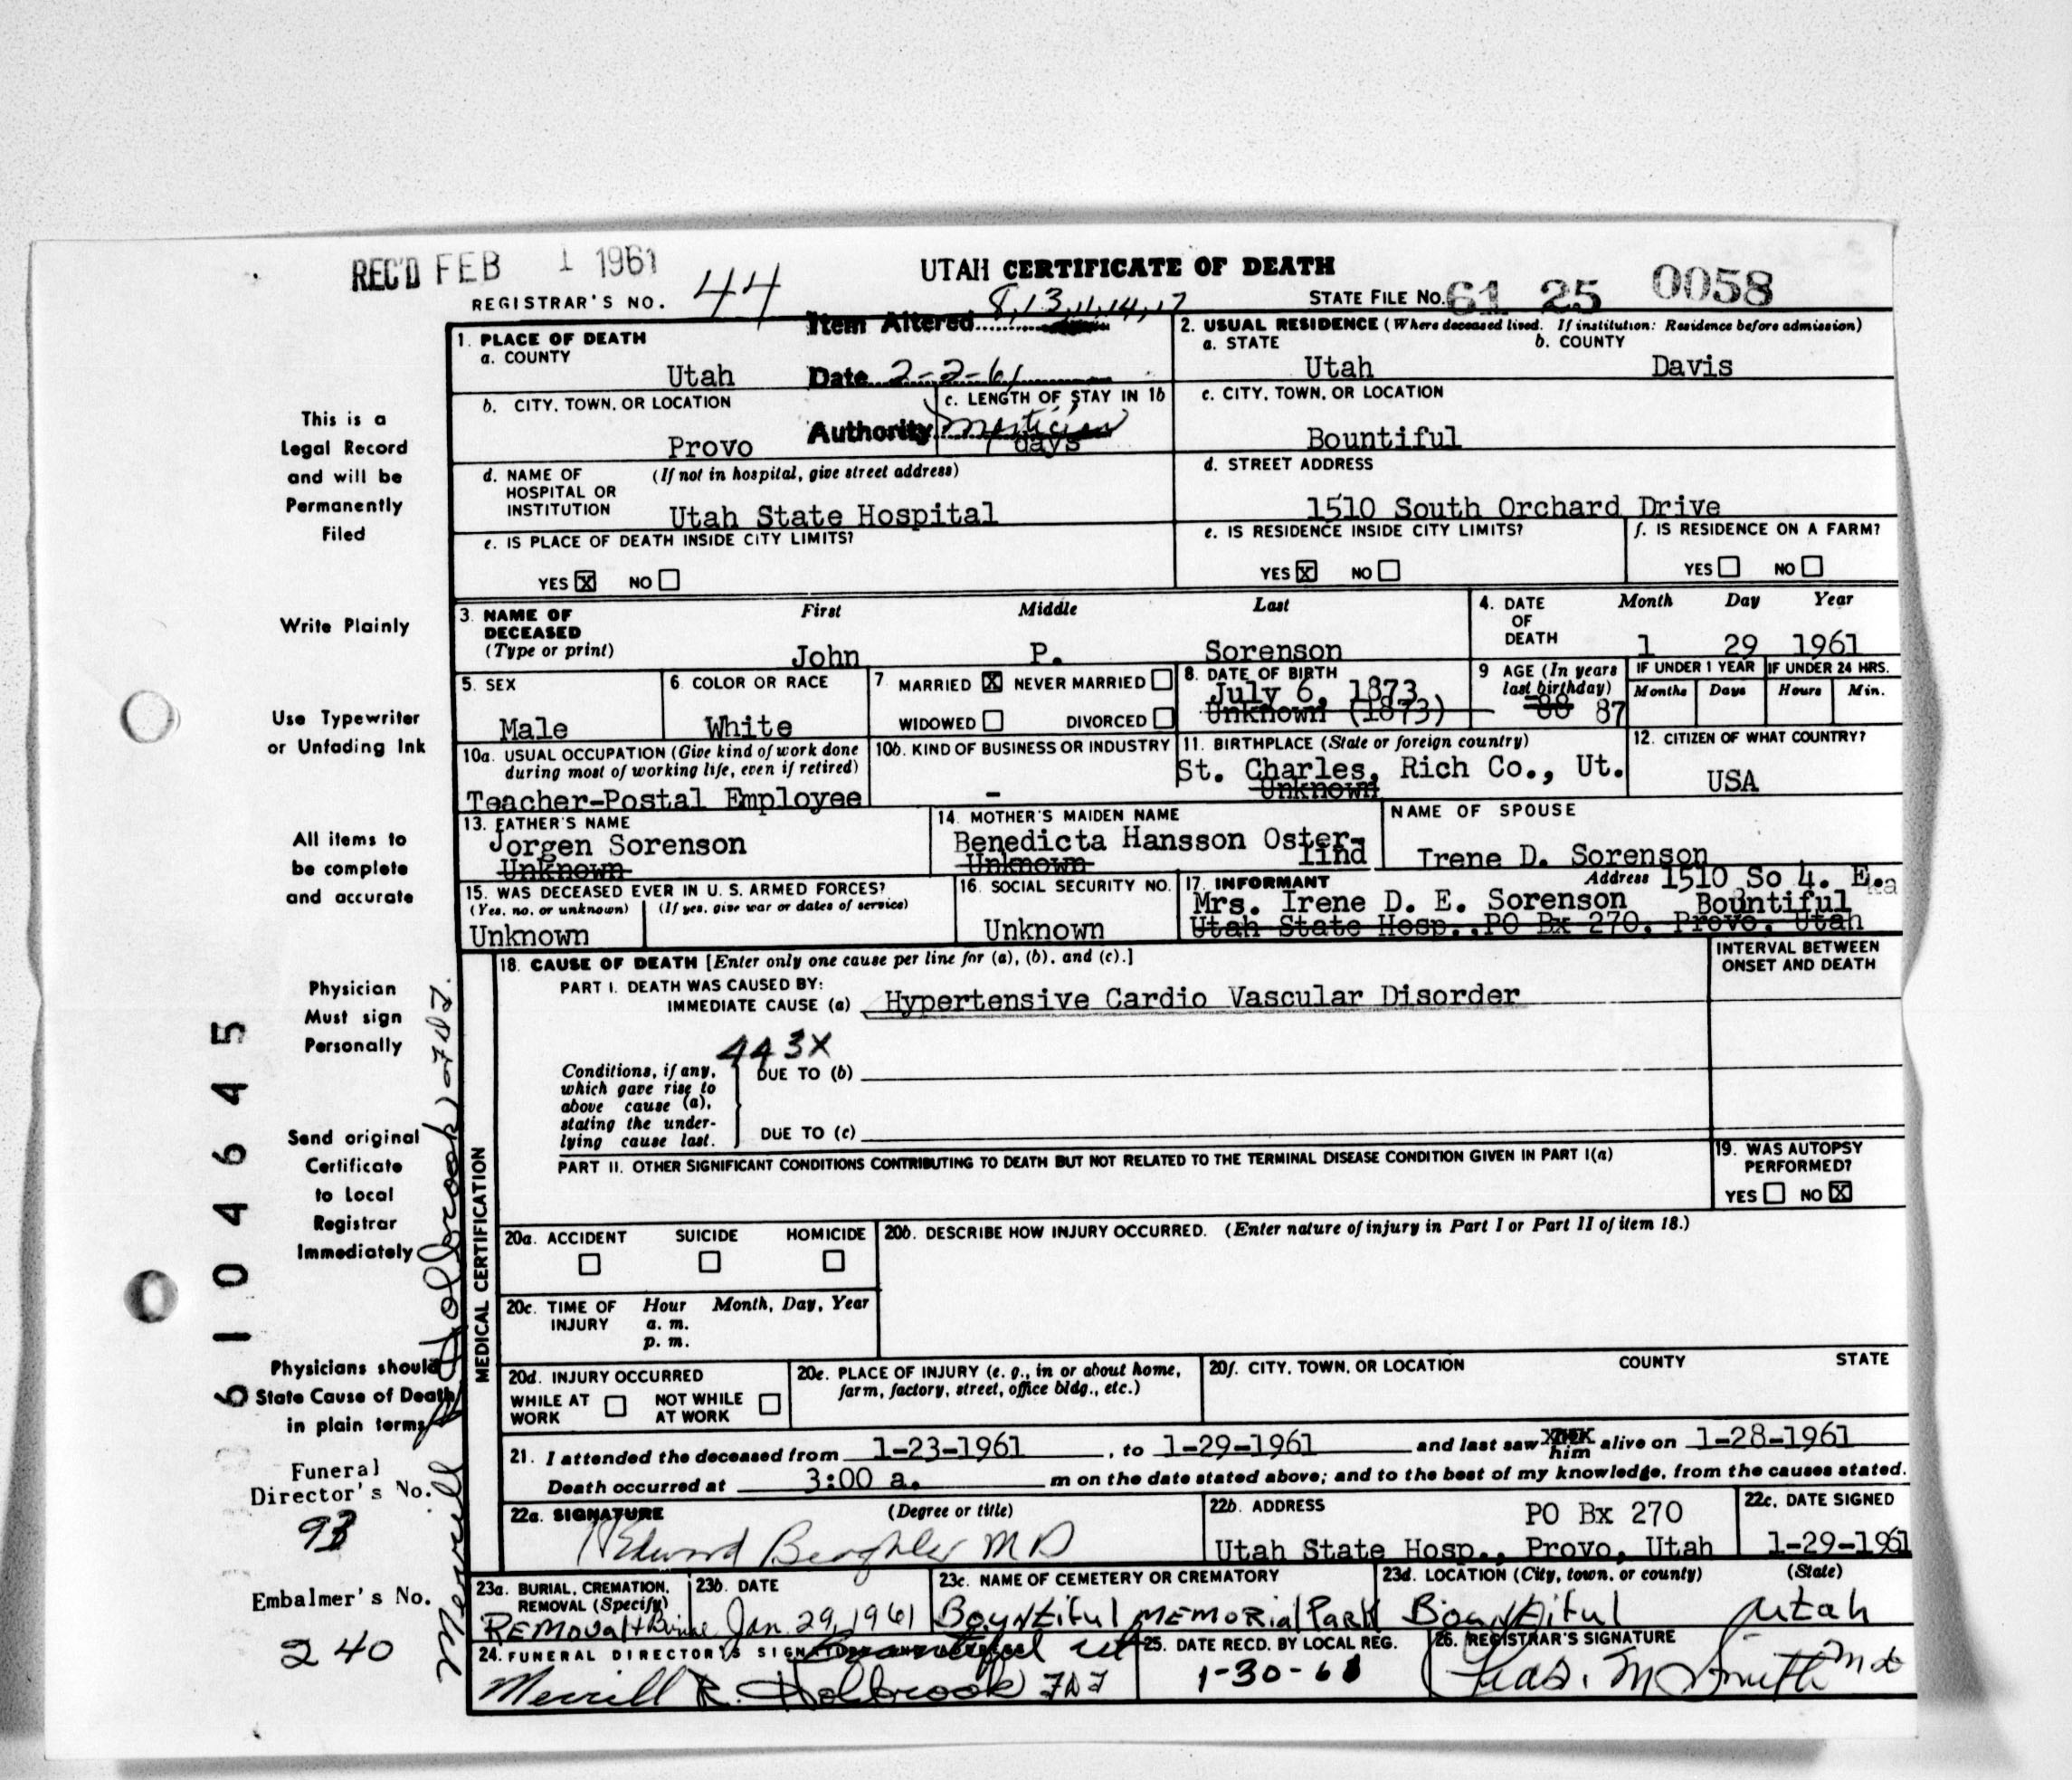 REC'D FEB 1 1961
UTAH CERTIFICATE OF DEATH
REGISTRAR'S NO. 44
STATE FILE NO. 61 25 0058
Item Altered 8, 13, 11, 14, 17
Date 2-2-61
Authority Mortician
1. PLACE OF DEATH
a. COUNTY
Utah
2. USUAL RESIDENCE (Where deceased lived. If institution: Residence before admission)
a. STATE
Utah
b. COUNTY
Davis
b. CITY, TOWN, OR LOCATION
Provo
c. LENGTH OF STAY IN 1b
days
c. CITY, TOWN, OR LOCATION
Bountiful
d. NAME OF HOSPITAL OR INSTITUTION
(If not in hospital, give street address)
Utah State Hospital
d. STREET ADDRESS
1510 South Orchard Drive
e. IS PLACE OF DEATH INSIDE CITY LIMITS?
YES X NO
e. IS RESIDENCE INSIDE CITY LIMITS?
YES X NO
f. IS RESIDENCE ON A FARM?
YES NO
3. NAME OF DECEASED (Type or print)
First Middle Last
John P. Sorenson
4. DATE OF DEATH
Month Day Year
1 29 1961
5. SEX
Male
6. COLOR OR RACE
White
7 MARRIED X NEVER MARRIED
WIDOWED DIVORCED
8. DATE OF BIRTH
July 6, 1873
Unknown (1873)
9 AGE (In years last birthday)
88 87
IF UNDER 1 YEAR
Months Days
IF UNDER 24 HRS.
Hours Min.
10a. USUAL OCCUPATION (Give kind of work done during most of working life, even if retired)
Teacher-Postal Employee
10b. KIND OF BUSINESS OR INDUSTRY
-
11. BIRTHPLACE (State or foreign country)
St. Charles, Rich Co., Ut.
Unknown
12. CITIZEN OF WHAT COUNTRY?
USA
13. FATHER'S NAME
Jorgen Sorenson
Unknown
14. MOTHER'S MAIDEN NAME
Benedicta Hansson Oster-
lind
Unknown
NAME OF SPOUSE
Irene D. Sorenson
15. WAS DECEASED EVER IN U. S. ARMED FORCES?
(Yes, no, or unknown) (If yes, give war or dates of service)
Unknown
16. SOCIAL SECURITY NO.
Unknown
17. INFORMANT Address 1510 So 4. E.
Mrs. Irene D. E. Sorenson Bountiful
Utah State Hosp., PO Bx 270, Provo, Utah
MEDICAL CERTIFICATION
18. CAUSE OF DEATH [Enter only one cause per line for (a), (b), and (c).]
INTERVAL BETWEEN ONSET AND DEATH
PART I. DEATH WAS CAUSED BY:
IMMEDIATE CAUSE (a) Hypertensive Cardio Vascular Disorder
443X
Conditions, if any, which gave rise to above cause (a), stating the underlying cause last.
DUE TO (b)
DUE TO (c)
PART II. OTHER SIGNIFICANT CONDITIONS CONTRIBUTING TO DEATH BUT NOT RELATED TO THE TERMINAL DISEASE CONDITION GIVEN IN PART I(a)
19. WAS AUTOPSY PERFORMED?
YES NO X
20a. ACCIDENT SUICIDE HOMICIDE
20b. DESCRIBE HOW INJURY OCCURRED. (Enter nature of injury in Part I or Part II of item 18.)
20c. TIME OF INJURY Hour Month, Day, Year
a. m.
p. m.
20d. INJURY OCCURRED
WHILE AT WORK NOT WHILE AT WORK
20e. PLACE OF INJURY (e. g., in or about home, farm, factory, street, office bldg., etc.)
20f. CITY, TOWN, OR LOCATION COUNTY STATE
21. I attended the deceased from 1-23-1961, to 1-29-1961 and last saw him alive on 1-28-1961
Death occurred at 3:00 a. m on the date stated above; and to the best of my knowledge, from the causes stated.
22a. SIGNATURE (Degree or title)
Edward Beaghler MD
22b. ADDRESS PO Bx 270
Utah State Hosp., Provo, Utah
22c. DATE SIGNED
1-29-1961
23a. BURIAL, CREMATION, REMOVAL (Specify)
Removal + Burial
23b. DATE
Jan. 29, 1961
23c. NAME OF CEMETERY OR CREMATORY
Bountiful Memorial Park
23d. LOCATION (City, town, or county) (State)
Bountiful Utah
24. FUNERAL DIRECTOR'S SIGNATURE AND ADDRESS
Bountiful Ut
Merrill R. Holbrook
25. DATE RECD. BY LOCAL REG.
1-30-61
26. REGISTRAR'S SIGNATURE
Chas. M Smith MD
This is a
Legal Record
and will be
Permanently
Filed
Write Plainly
Use Typewriter
or Unfading Ink
All items to
be complete
and accurate
Physician
Must sign
Personally
Send original
Certificate
to Local
Registrar
Immediately
Physicians should
State Cause of Death
in plain terms
Funeral
Director's No.
93
Embalmer's No.
240
6104645
Merrill R Holbrook